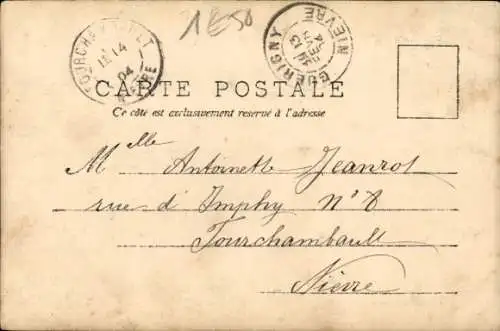 1E50
FOURCHAMBAULT
1E 14
04
NIEVRE
GUERIGNY
13
FEVR
04
NIEVRE
CARTE POSTALE
Ce côté est exclusivement reservé à l'adresse
Mlle Antoinette Jeanrot
rue d'Imphy N° 8
Fourchambault
Nièvre